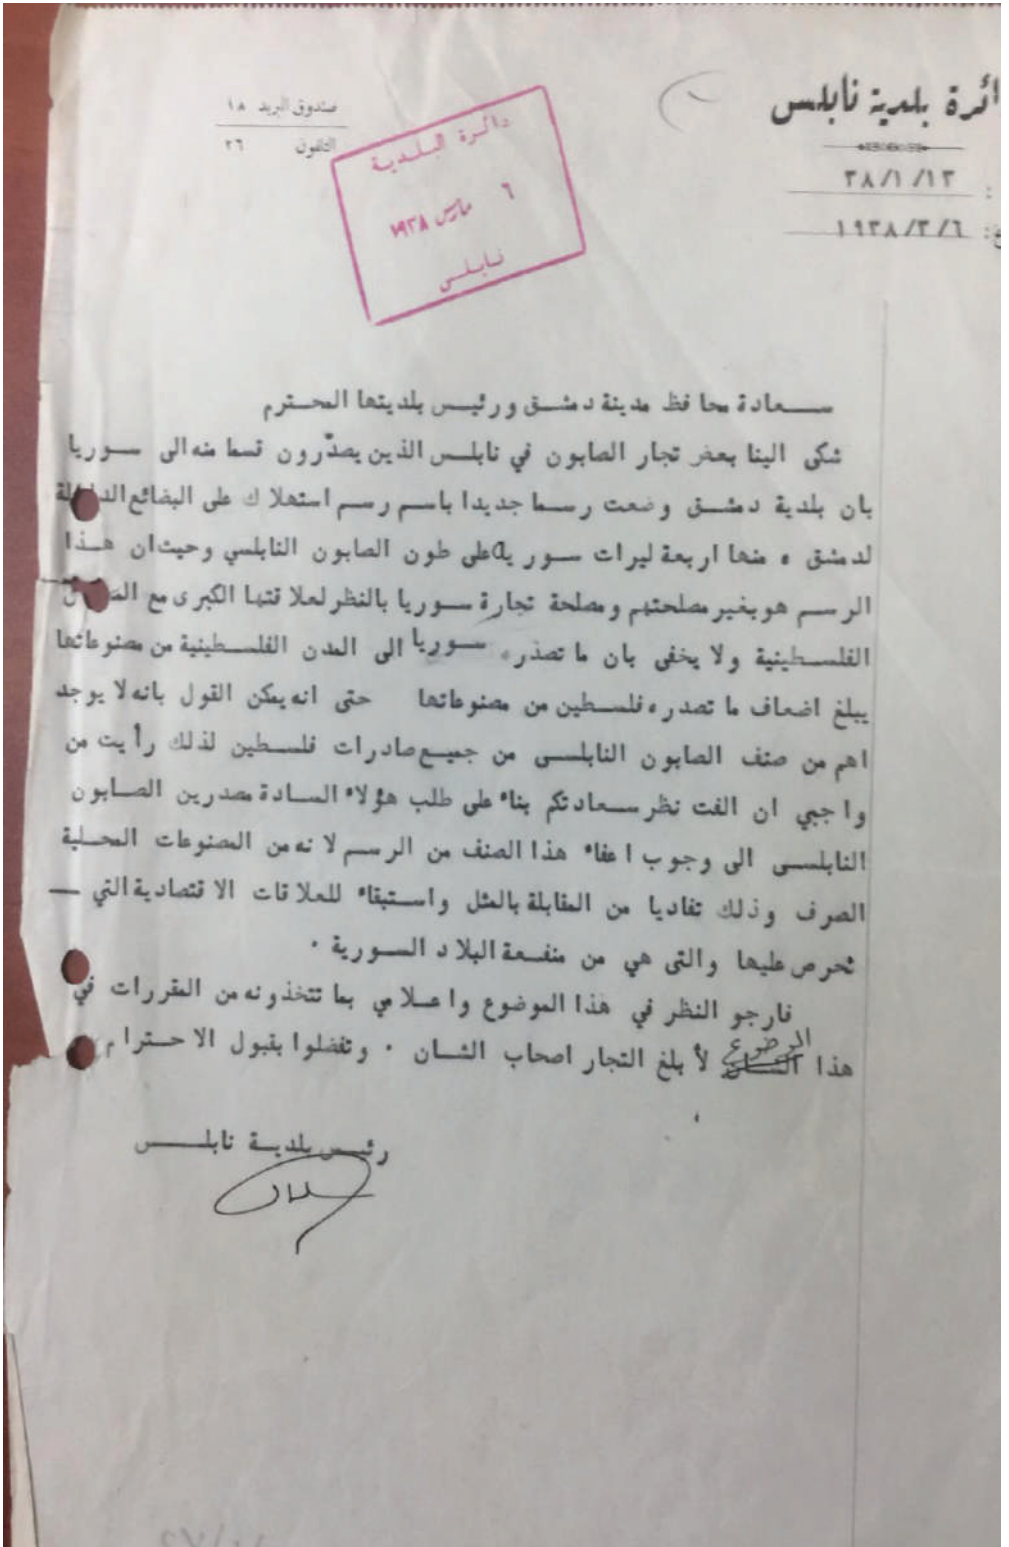 دائرة بلدية نابلس
صندوق البريد ١٨
التلفون ٢٦
٣٨/١/١٣
١٩٣٨/٣/٦
دائرة البلدية
٦ مارس ١٩٣٨
نابلس
سعادة محافظ مدينة دمشق ورئيس بلديتها المحترم
شكى الينا بعض تجار الصابون في نابلس الذين يصدّرون قسما منه الى سوريا
بان بلدية دمشق وضعت رسما جديدا باسم رسم استهلاك على البضائع الداخلة
لدمشق ٠ منها اربعة ليرات سورية على طون الصابون النابلسي وحيث ان هذا
الرسم هو بغير مصلحتهم ومصلحة تجارة سوريا بالنظر لعلاقتها الكبرى مع
الفلسطينية ولا يخفى بان ما تصدره سوريا الى المدن الفلسطينية من مصنوعاتها
يبلغ اضعاف ما تصدره فلسطين من مصنوعاتها حتى انه يمكن القول بانه لا يوجد
اهم من صنف الصابون النابلسى من جميع صادرات فلسطين لذلك رأيت من
واجبي ان الفت نظر سعادتكم بناء على طلب هؤلاء السادة مصدرين الصابون
النابلسى الى وجوب اعفاء هذا الصنف من الرسم لانه من المصنوعات المحلية
الصرف وذلك تفاديا من المقابلة بالمثل واستبقاء للعلاقات الاقتصادية التي ــ
نحرص عليها والتى هي من منفعة البلاد السورية ٠
فارجو النظر في هذا الموضوع واعلامي بما تتخذونه من المقررات في
هذا الموضوع لأبلغ التجار اصحاب الشان ٠ وتفضلوا بقبول الاحترام
رئيس بلدية نابلس